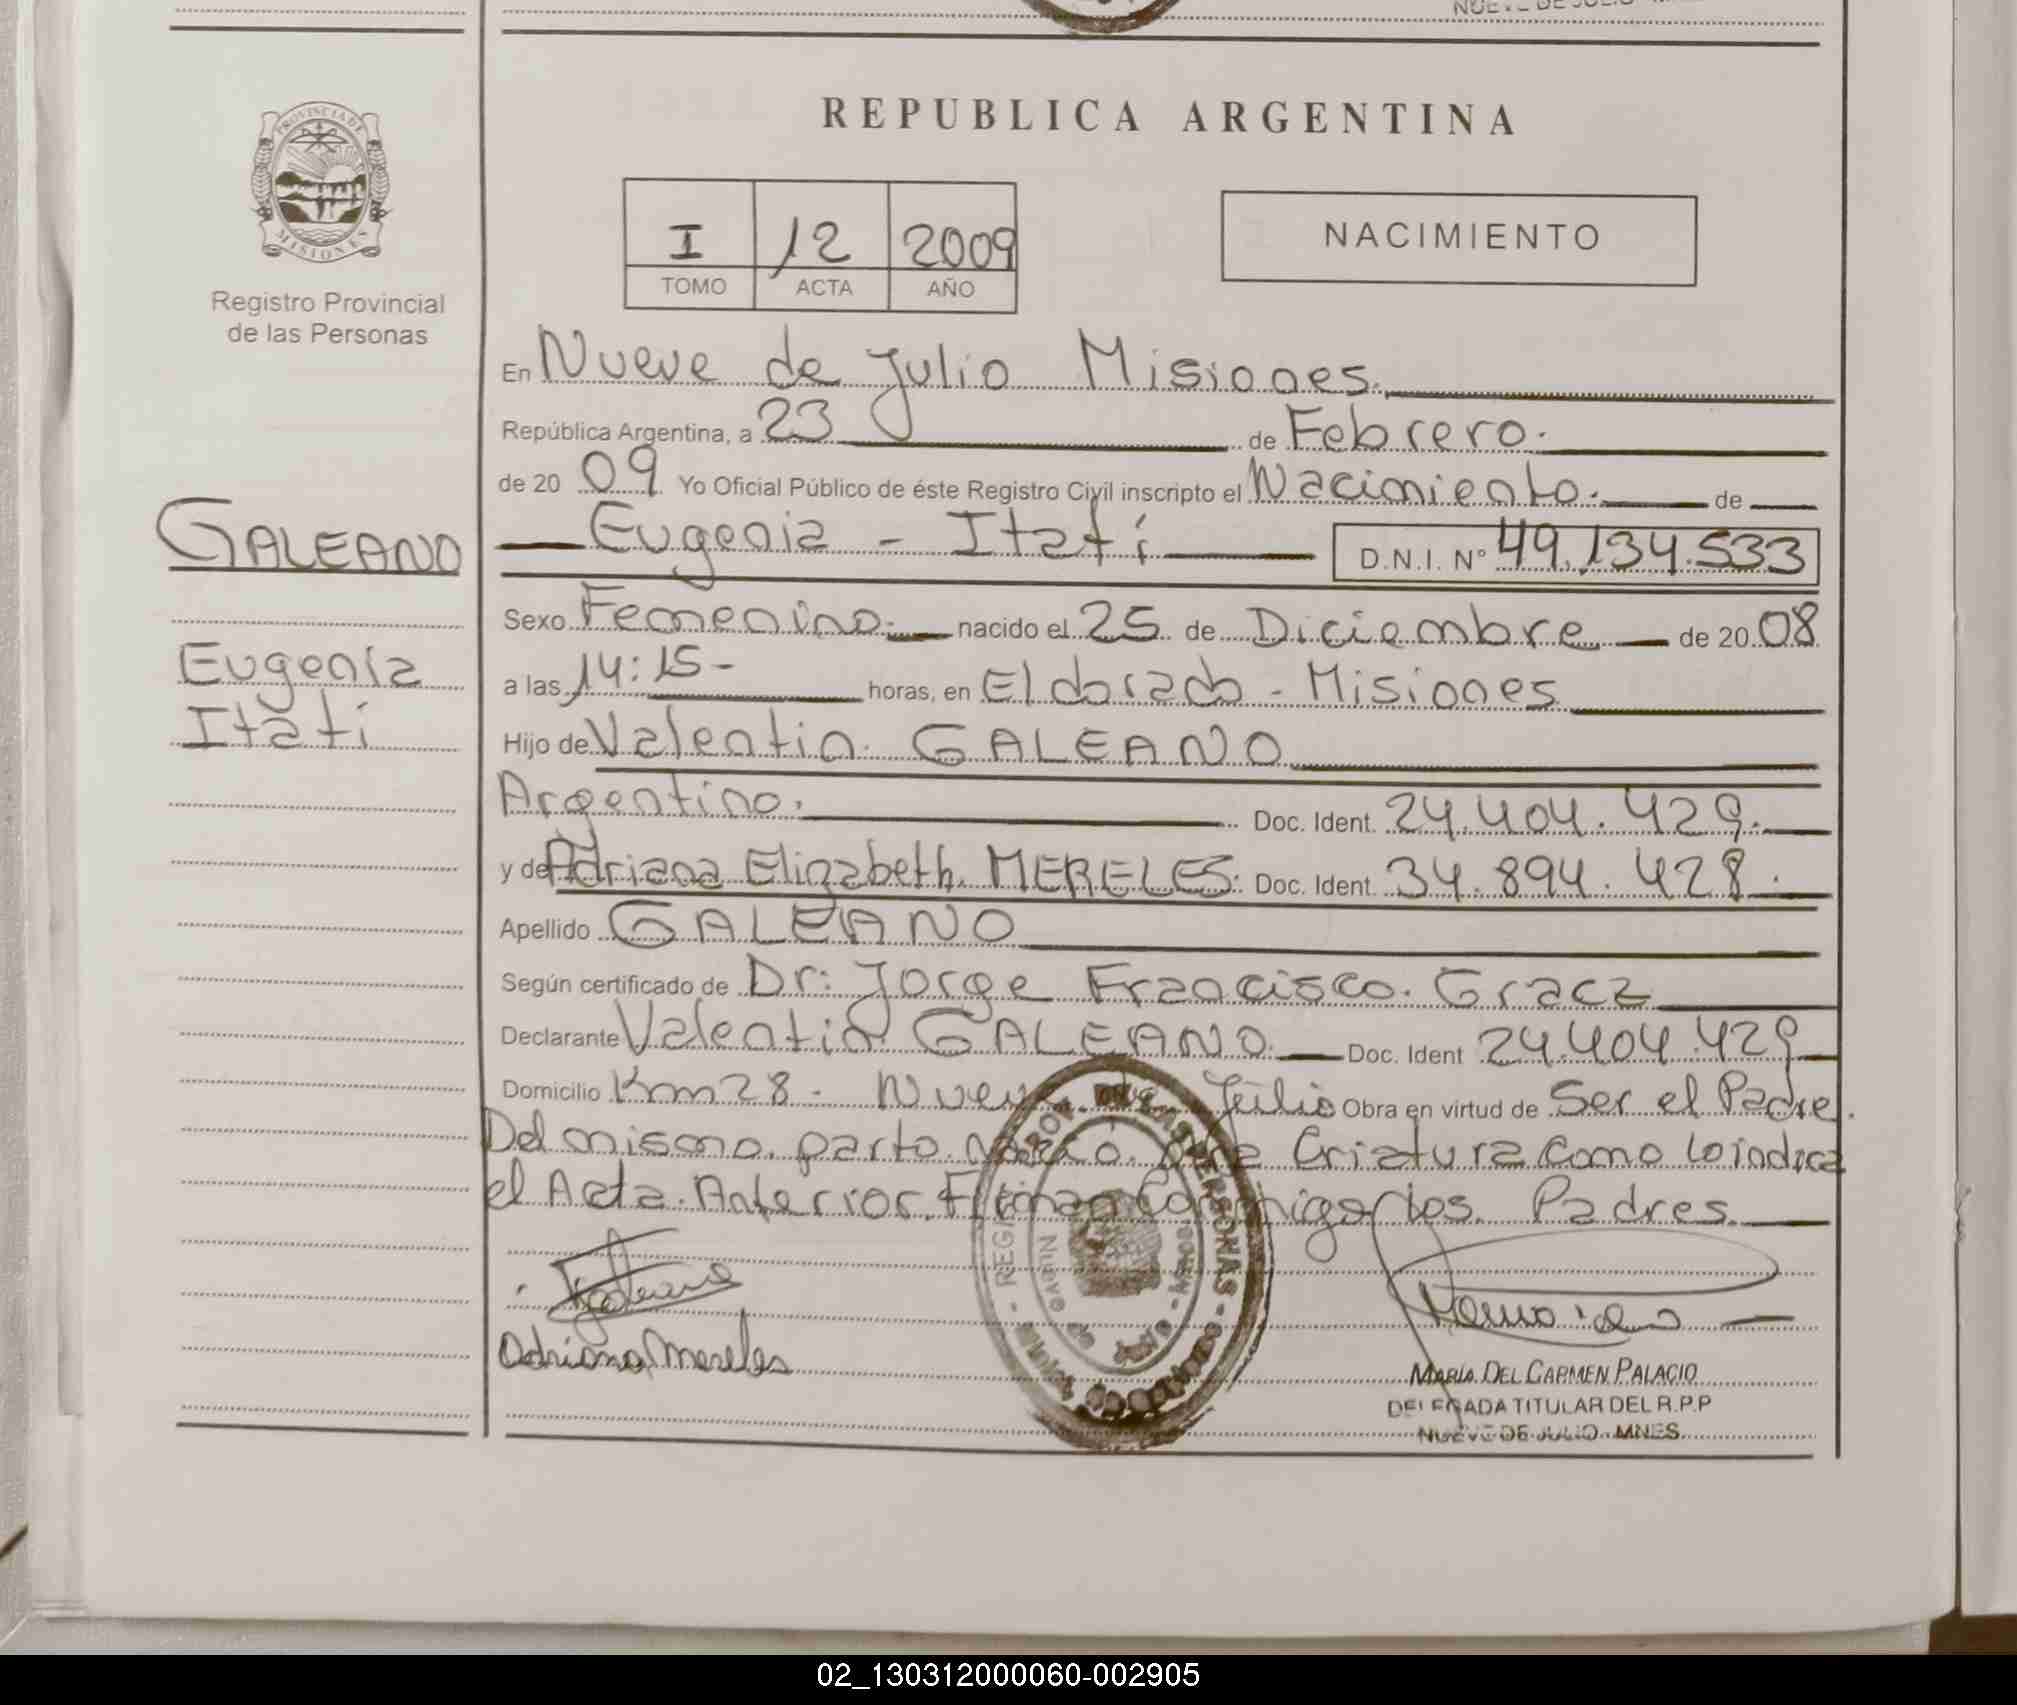 REPUBLICA ARGENTINA
PROVINCIA DE
MISIONES
Registro Provincial
de las Personas
I 12 2009
TOMO ACTA AÑO
NACIMIENTO
En Nueve de Julio Misiones.
República Argentina, a 23 de Febrero.
de 20 09 Yo Oficial Público de éste Registro Civil inscripto el Nacimiento. de
GALEANO
Eugenia - Itatí D.N.I. Nº 49.134.533
Sexo Femenino. nacido el 25 de Diciembre de 20 08
Eugenia
Itatí
a las 14:15- horas, en Eldorado - Misiones
Hijo de Valentin GALEANO
Argentino. Doc. Ident. 24.404.429.
y de Adriana Elizabeth. MERELES. Doc. Ident. 34.894.428.
Apellido GALEANO
Según certificado de Dr: Jorge Francisco. Gracz
Declarante Valentin GALEANO Doc. Ident 24.404.429
Domicilio Km 28 - Nueve de Julio Obra en virtud de Ser el Padre.
Del mismo parto Nació Otra Criatura Como lo indica
el Acta Anterior. Firman Conmigo los Padres
Adriana Mereles
MARÍA DEL CARMEN PALACIO
DELEGADA TITULAR DEL R.P.P
NUEVE DE JULIO - MNES.
02_130312000060-002905